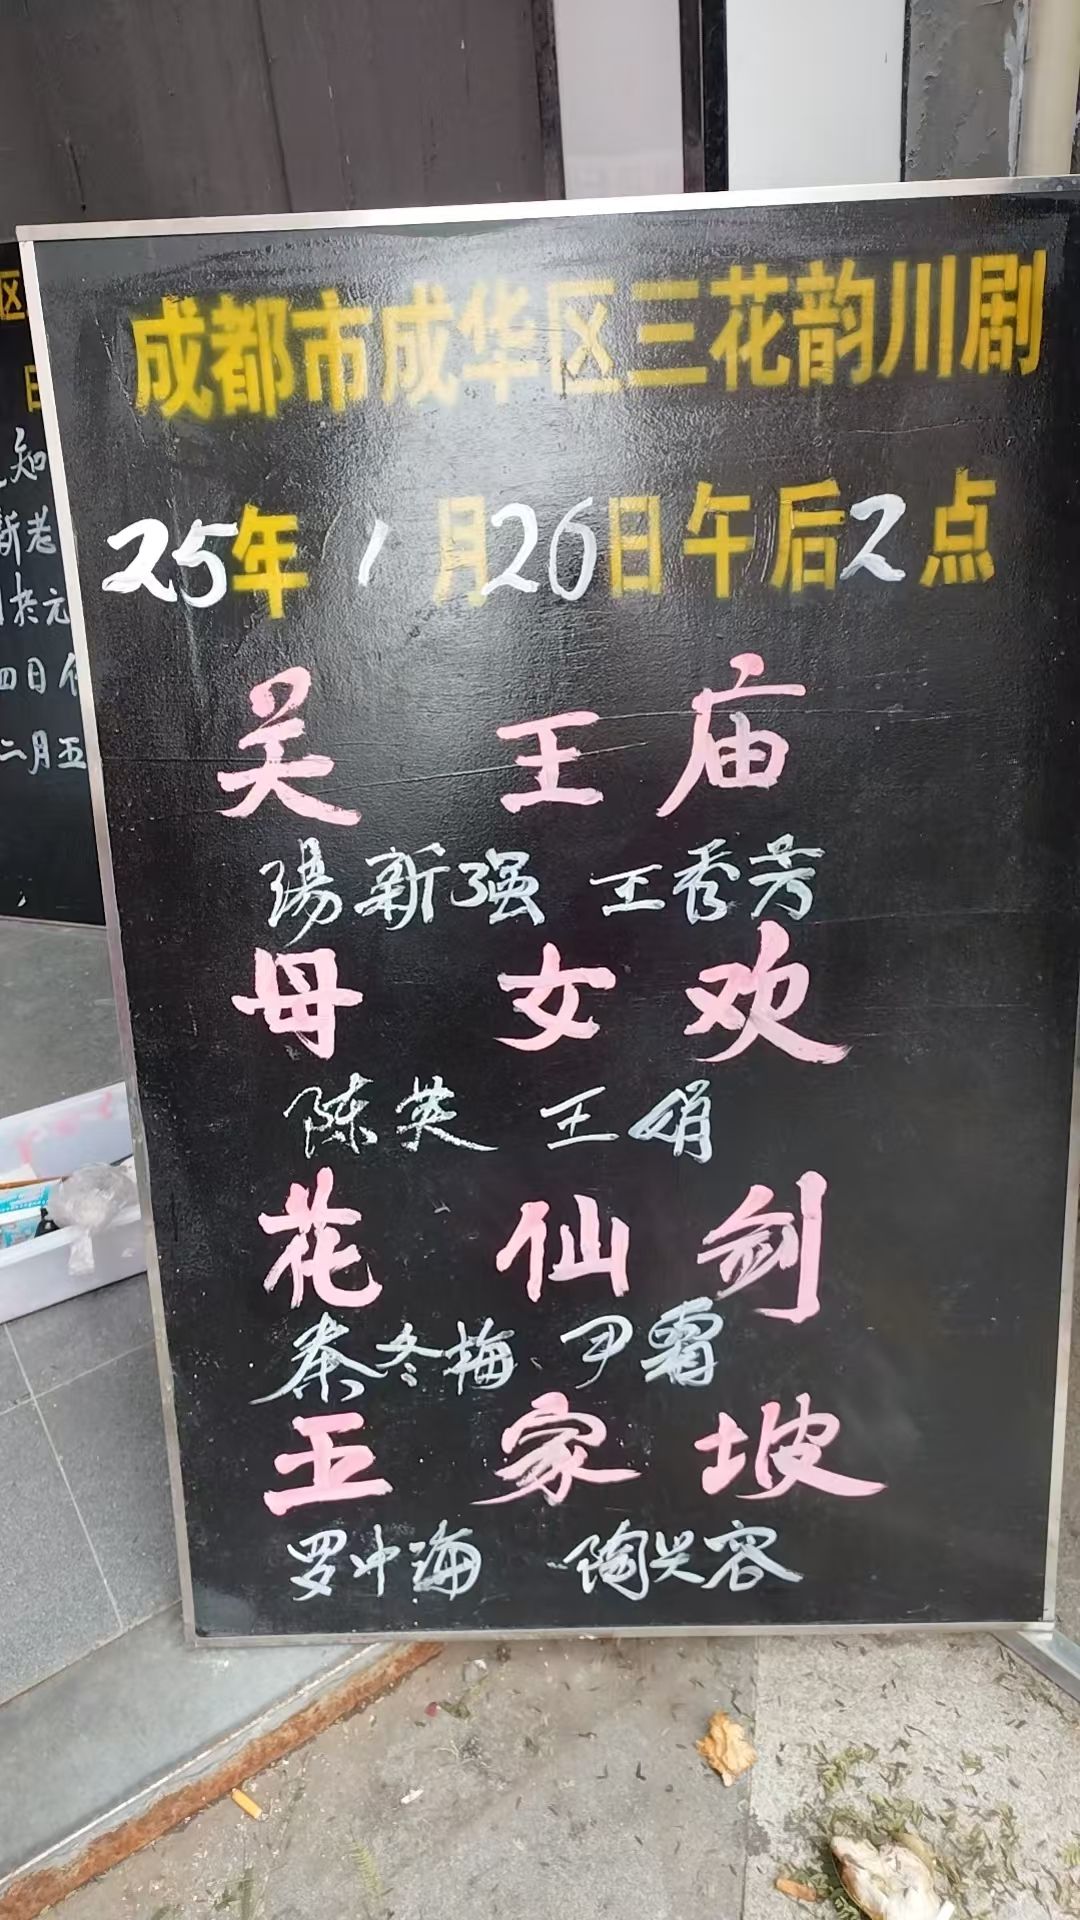 成都市成华区三花韵川剧
25年1月26日午后2点
关王庙
陽新强 王秀芳
母女欢
陈英 王娟
花仙剑
秦冬梅 尹霜
王家坡
罗中海 陶兴容
区
日
知
新老
於元
四日
二月五